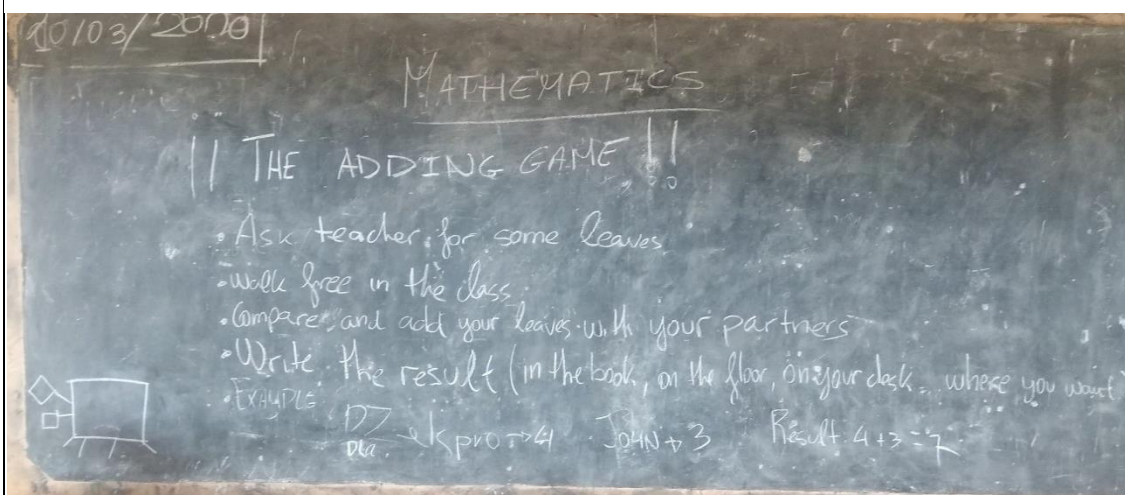 10/03/2020
MATHEMATICS
!! THE ADDING GAME!!
• Ask teacher for some leaves
• Walk free in the class
• Compare and add your leaves with your partners
• Write the result (in the book, on the floor, on your desk, where you want)
• EXAMPLE
→ 4 JOHN → 3 Result 4+3=7